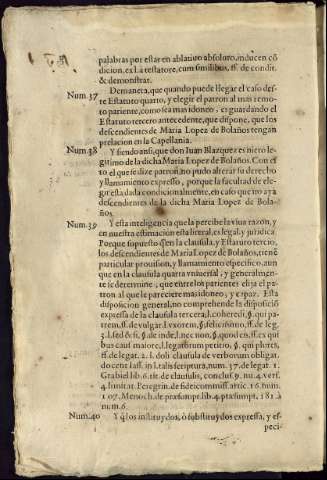 palabras por estar en ablatiuo absoluto, inducen cõ
dicion, ex l. à testatore, cum similibus, ff. de condit.
& demonstrar.
Num. 37 Demanera, que quando puede llegar el caso des-
te Estatuto quarto, y elegir el patron al mas remo-
to pariente, como sea mas idoneo, es guardando el
Estatuto tercero antecedente, que dispone, que los
descendientes de Maria Lopez de Bolaños tengan
prelacion en la Capellania.
Num. 38 Y siendo ansi, que don Iuan Blazquez es nieto le
gitimo de la dicha Maria Lopez de Bolaños. Con es
to el que se dize patron, no pudo alterar su derecho
y llamamiento expresso, porque la facultad de ele-
gir està dada condicionalmente, en caso que no aya
descendientes de la dicha Maria Lopez de Bola-
ños.
Num. 39 Y esta inteligencia que la percibe la viua razon, y
en nuestra estimacion està literal, es legal, y juridica
Porque supuesto que en la clausula, y Estatuto tercio,
los descendientes de Maria Lopez de Bolaños, tienẽ
particular prouision, y llamamiento especifico, aun
que en la clausula quarta vniuersal, y generalmen-
te se determine, que entre los parientes elija el pa-
tron al que le pareciere mas idoneo, y capaz. Esta
disposicion general, no comprehende la disposiciõ
expressa de la clausula tercera, l. coheredi. §. qui pa-
trem. ff. de vulgar. l. vxorem, §. felicissimo, ff. de leg.
3. l. sed & si, §. de inde, l. nec non, §. quod eis, ff. ex qui
bus caus. maiores, l. legatorum petitio, §. qui plures,
ff. de legat. 2. l. doli clausula de verborum obligat.
docent Iass. in l. talis scriptura, num. 37. de legat. 1.
Grabiel lib. 6. tit. de clausulis, conclus. 9. nu. 4. verf.
4. limitat. Peregrin. de fideicommiss. artic. 16. num.
107. Menoch. de præsumpt. lib. 4. præsumpt. 181. à
num. 6.
Num. 40 Y q̃ los instituydos, ò substituydos expressa, y es-
peci-